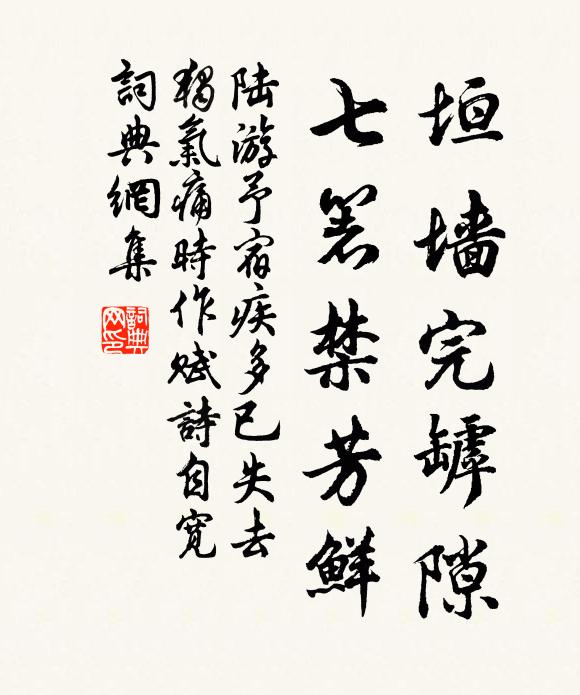 垣墙完罅隙
七箸禁芳鮮
陸游予宿疾多已失去
獨氣痛時作賦詩自寬
詞典網集
詞典
网印